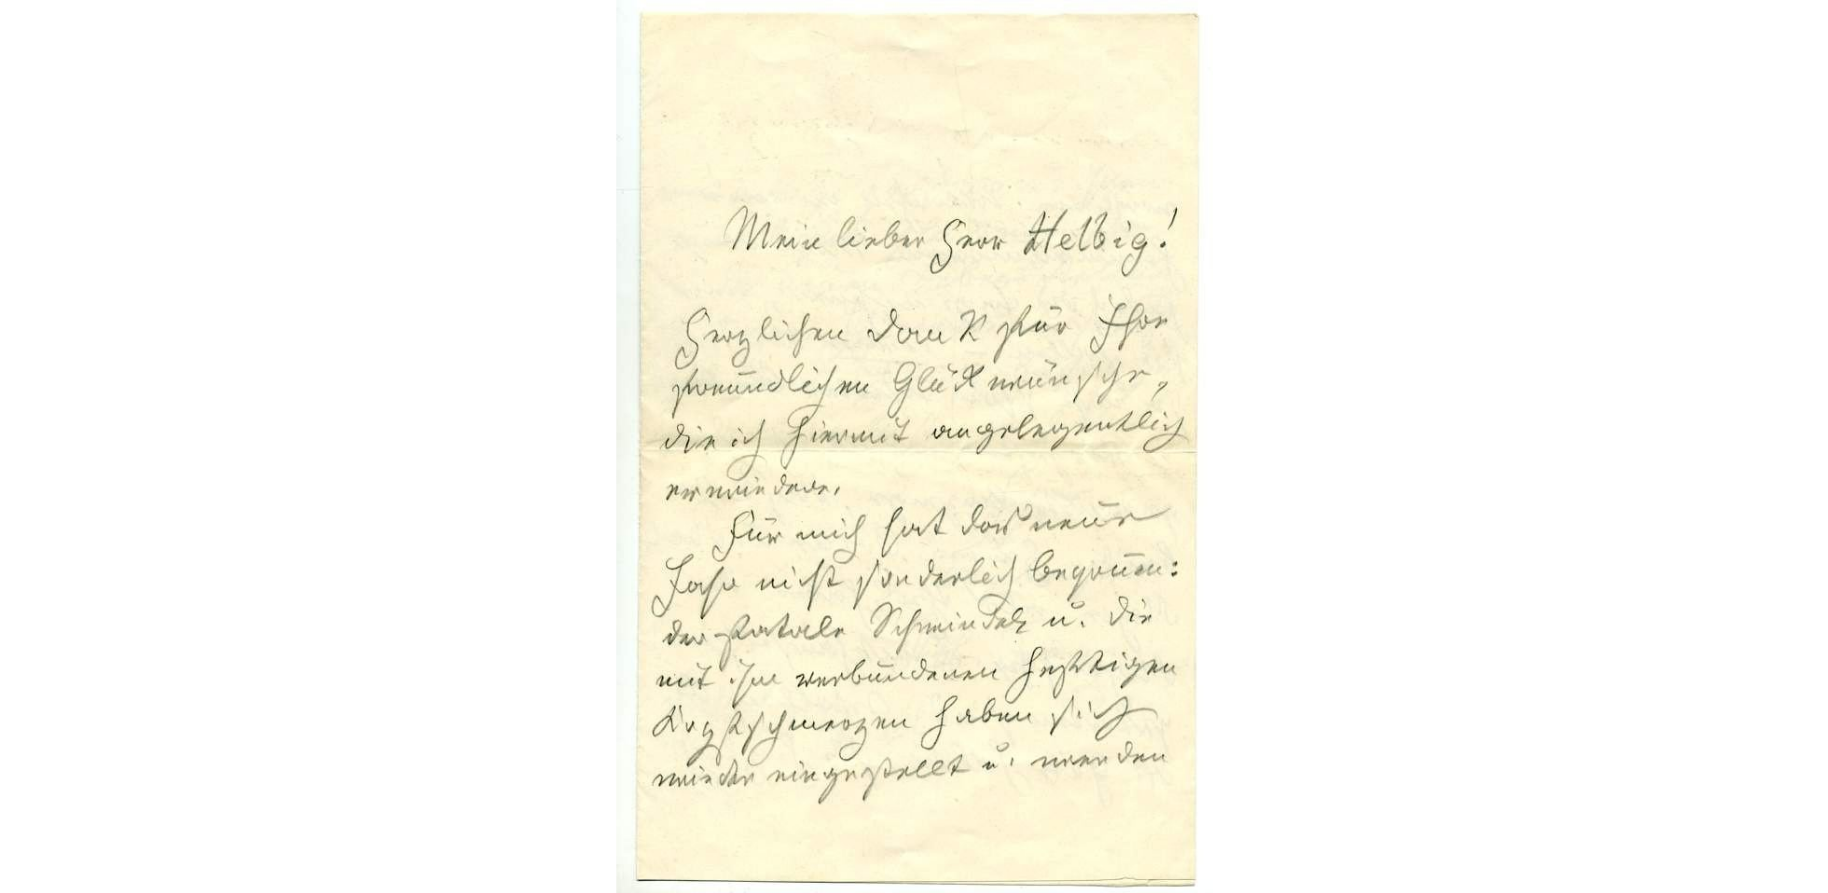 Mein lieber Herr Helbig!
Herzlichen Dank für Ihre
freundlichen Glückwünsche,
die ich hiermit angelegentlich
erwiedere.
Für mich hat das neue
Jahr nicht sonderlich begonnen:
der fatale Schwindel u. die
mit ihm verbundenen heftigen
Kopfschmerzen haben sich
wieder eingestellt u. werden